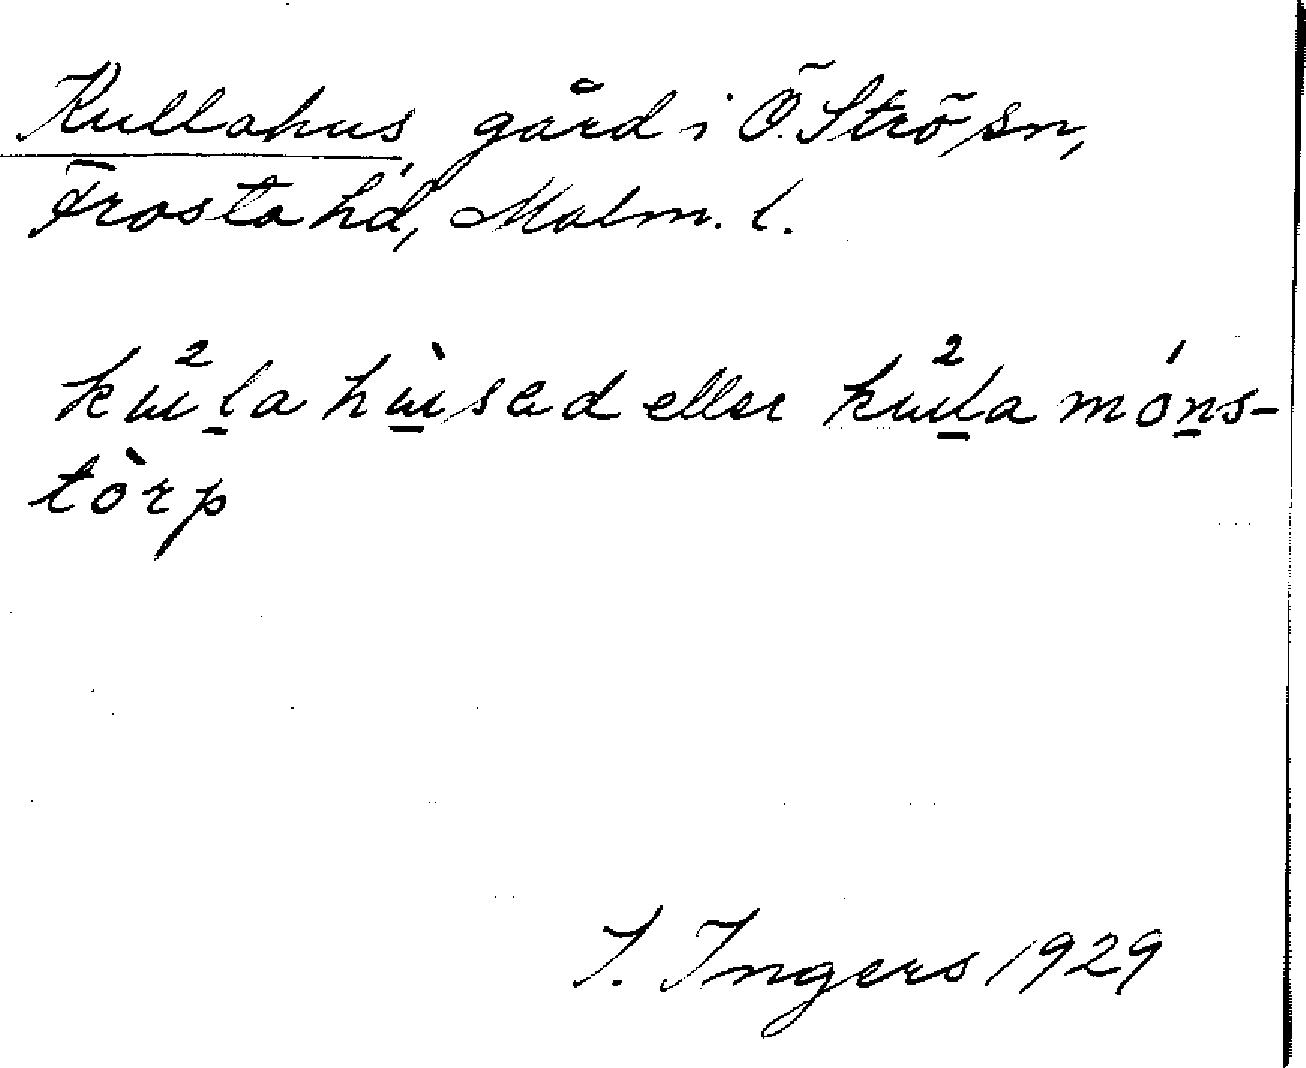 Kullahus, gård i Ö. Strö sn,
Frosta hd, Malm. l.
ku²l̲a hù̲sad eller ku²l̲a món̲s-
tòrp
I. Ingers 1929